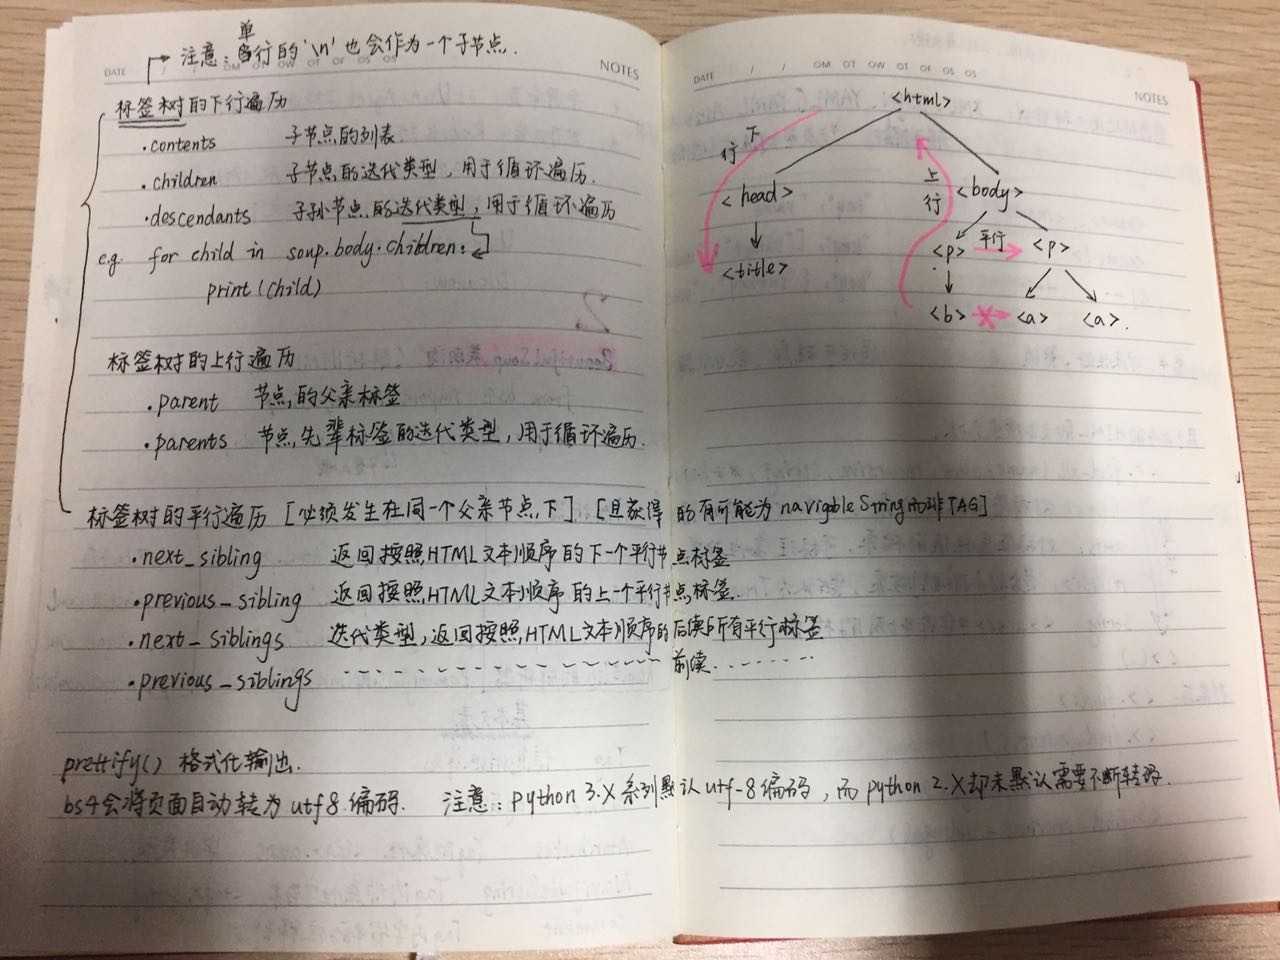 注意：单行的'\n'也会作为一个子节点.
DATE / / OM OT OW OT OF OS OS NOTES
标签树的下行遍历
.contents 子节点的列表.
.children 子节点的迭代类型，用于循环遍历.
.descendants 子孙节点的迭代类型，用于循环遍历
e.g. for child in soup.body.children:
print(child)
标签树的上行遍历
.parent 节点的父亲标签
.parents 节点先辈标签的迭代类型，用于循环遍历.
标签树的平行遍历 [必须发生在同一个父亲节点下] [且获得的有可能为navigbleString而非TAG]
.next_sibling 返回按照HTML文本顺序的下一个平行节点标签
.previous_sibling 返回按照HTML文本顺序的上一个平行节点标签.
.next_siblings 迭代类型，返回按照HTML文本顺序的后续所有平行标签
.previous_siblings 前续
prettify() 格式化输出.
bs4会将页面自动转为utf8编码. 注意：python 3.X系列默认utf-8编码，而python 2.X却未默认需要不断转码.
DATE / / OM OT OW OT OF OS OS NOTES
<html>
下行
上行
<head> <body>
<p> 平行 <p>
<title>
<b> <a> <a>.